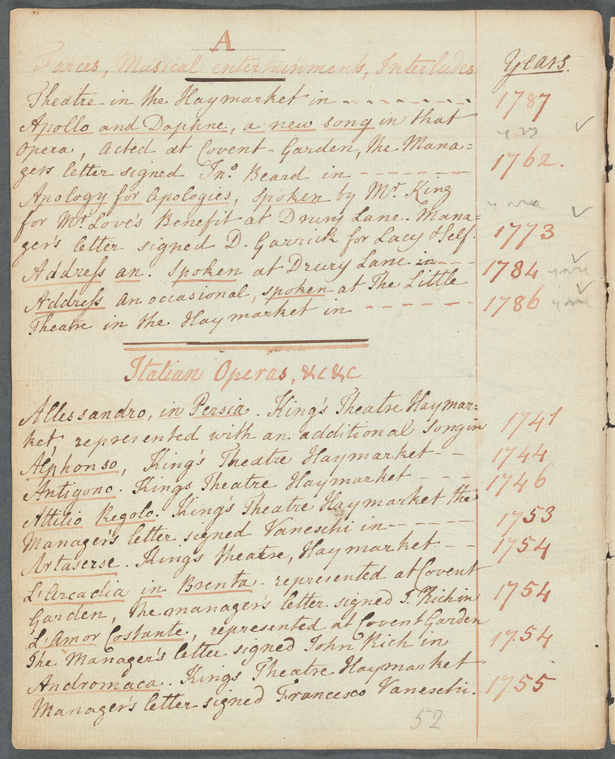 A
Farces, Musical entertainments, Interludes
Years.
Theatre in the Haymarket in - - - - - - 1787
Apollo and Daphne, a new song in that
Opera, acted at Covent-Garden, the Mana=
gers letter signed Jno Beard in - - - - - - 1762.
Apology for Apologies, spoken by Mr. King
for Mr. Love's Benefit at Drury Lane. Mana=
ger's letter signed D. Garrick for Lacy & Self. 1773
Address an. spoken at Drury Lane in - - 1784
Address an occasional, spoken at The Little
Theatre in the Haymarket in - - - - - - 1786
Italian Operas, &c &c
Allessandro, in Persia. King's Theatre Haymar=
ket, represented with an additional Song in 1741
Alphonso, King's Theatre Haymarket - - 1744
Antigono. Kings Theatre Haymarket - - - 1746
Attilio Regolo. King's Theatre Haymarket the
Manager's letter signed Vaneschi in - - - - 1753
Artaserse. King's Theatre, Haymarket - - 1754
L'Arcadia in Brenta. represented at Covent
Garden, the managers letter signed J. Rich in 1754
L'Amor Costante, represented at Covent Garden
The Manager's letter signed John Rich in 1754
Andromaca. Kings Theatre Haymarket
Manager's letter signed Francesco Vaneschi. 1755
52